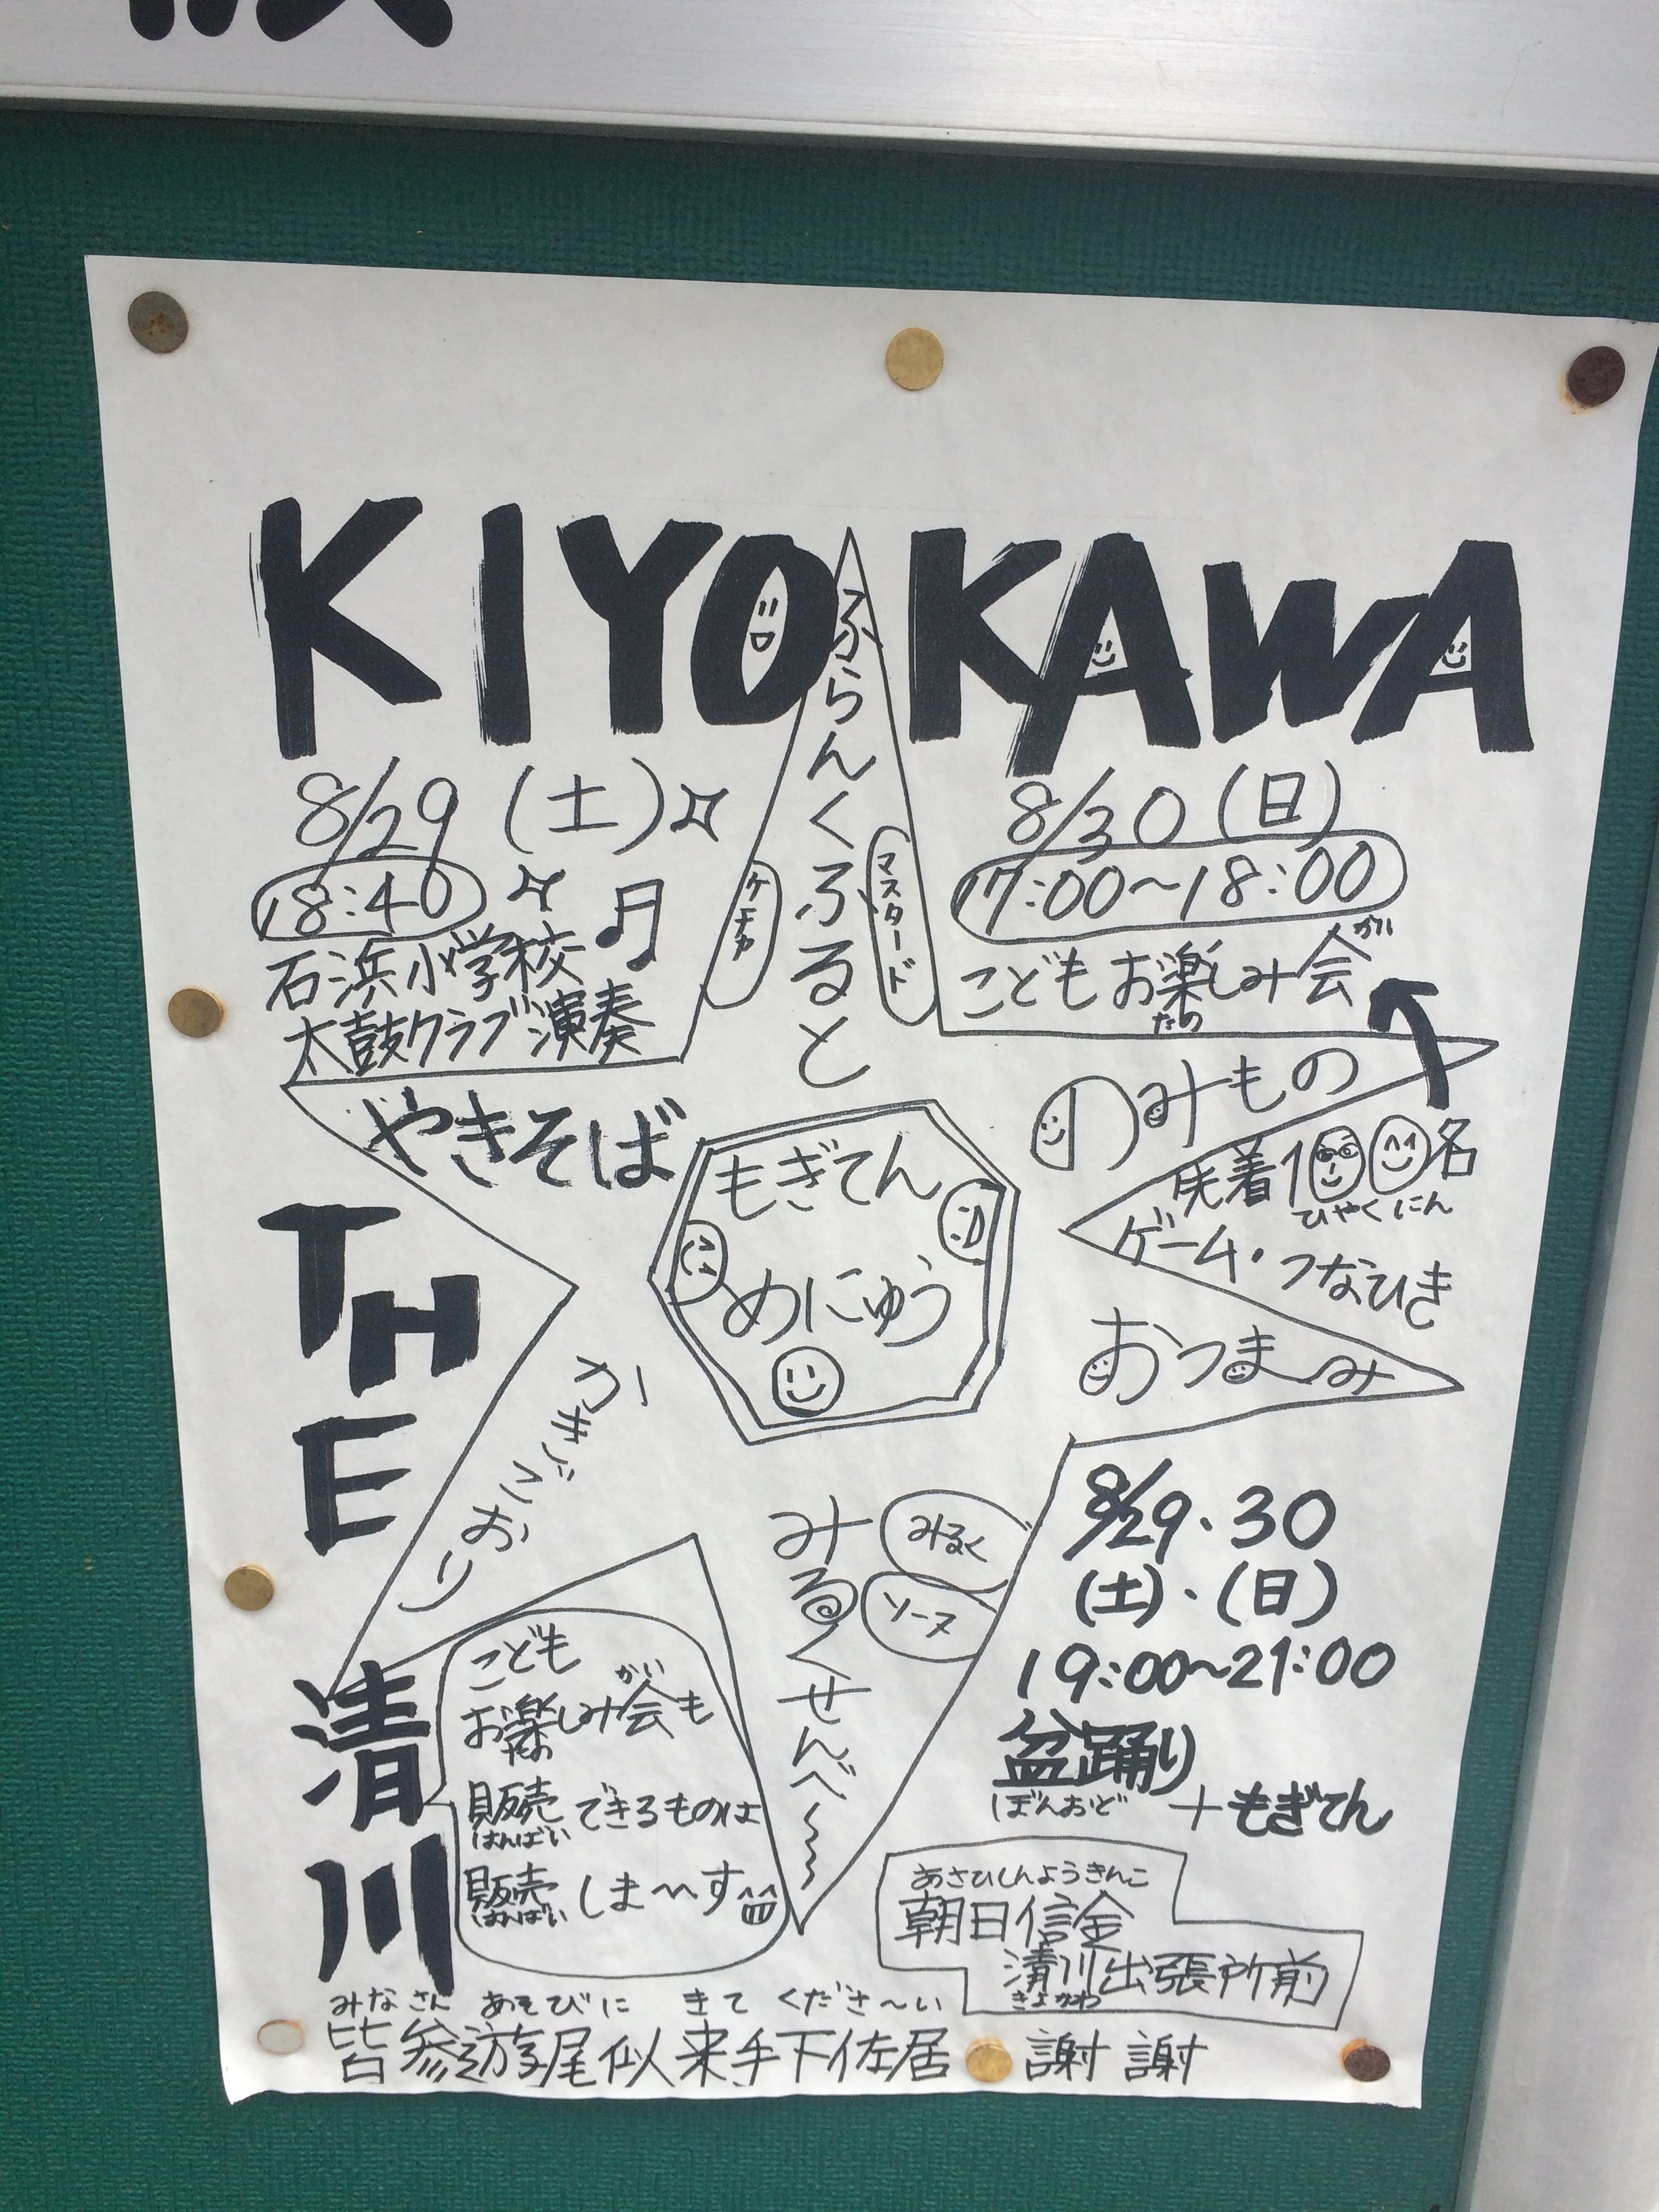 KIYOKAWA
8/29(土)
18:40
石浜小学校
太鼓クラブ演奏
ふらんくふると
ケチャ
マスタード
8/30(日)
17:00〜18:00
こどもお楽しみ会
がい
たの
のみもの
先着100名
ひゃくにん
ゲーム・つなひき
やきそば
もぎてん
めにゅう
おつまみ
かきごおり
みるくせんべ〜
みるく
ソース
THE
清川
こども
お楽しみ会も
がい
たの
販売できるものは
はんばい
販売しま〜す
はんばい
8/29・30
(土)・(日)
19:00〜21:00
盆踊り
ぼんおど
+もぎてん
あさひしんようきんこ
朝日信金
清川出張所前
きよかわ
みなさん あそびに きて くださ〜い
皆参遊尾似来手下佐居 謝謝